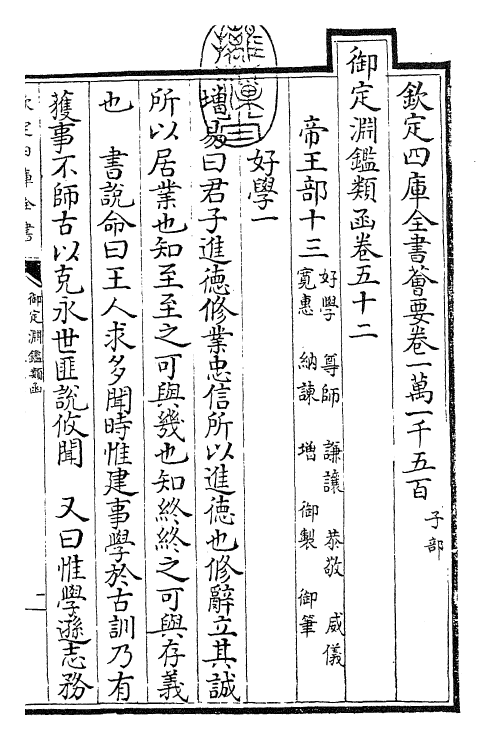 欽定四庫全書薈要卷一萬一千五百 子部
御定淵鑑類函卷五十二
帝王部十三 好學 尊師 謙讓 恭敬 威儀
寛惠 納諫 增 御製 御筆
好學一
增易曰君子進德修業忠信所以進德也修辭立其誠
所以居業也知至至之可與幾也知終終之可與存義
也 書說命曰王人求多聞時惟建事學於古訓乃有
獲事不師古以克永世匪說攸聞 又曰惟學遜志務
欽定四庫全書
御定淵鑑類函
一